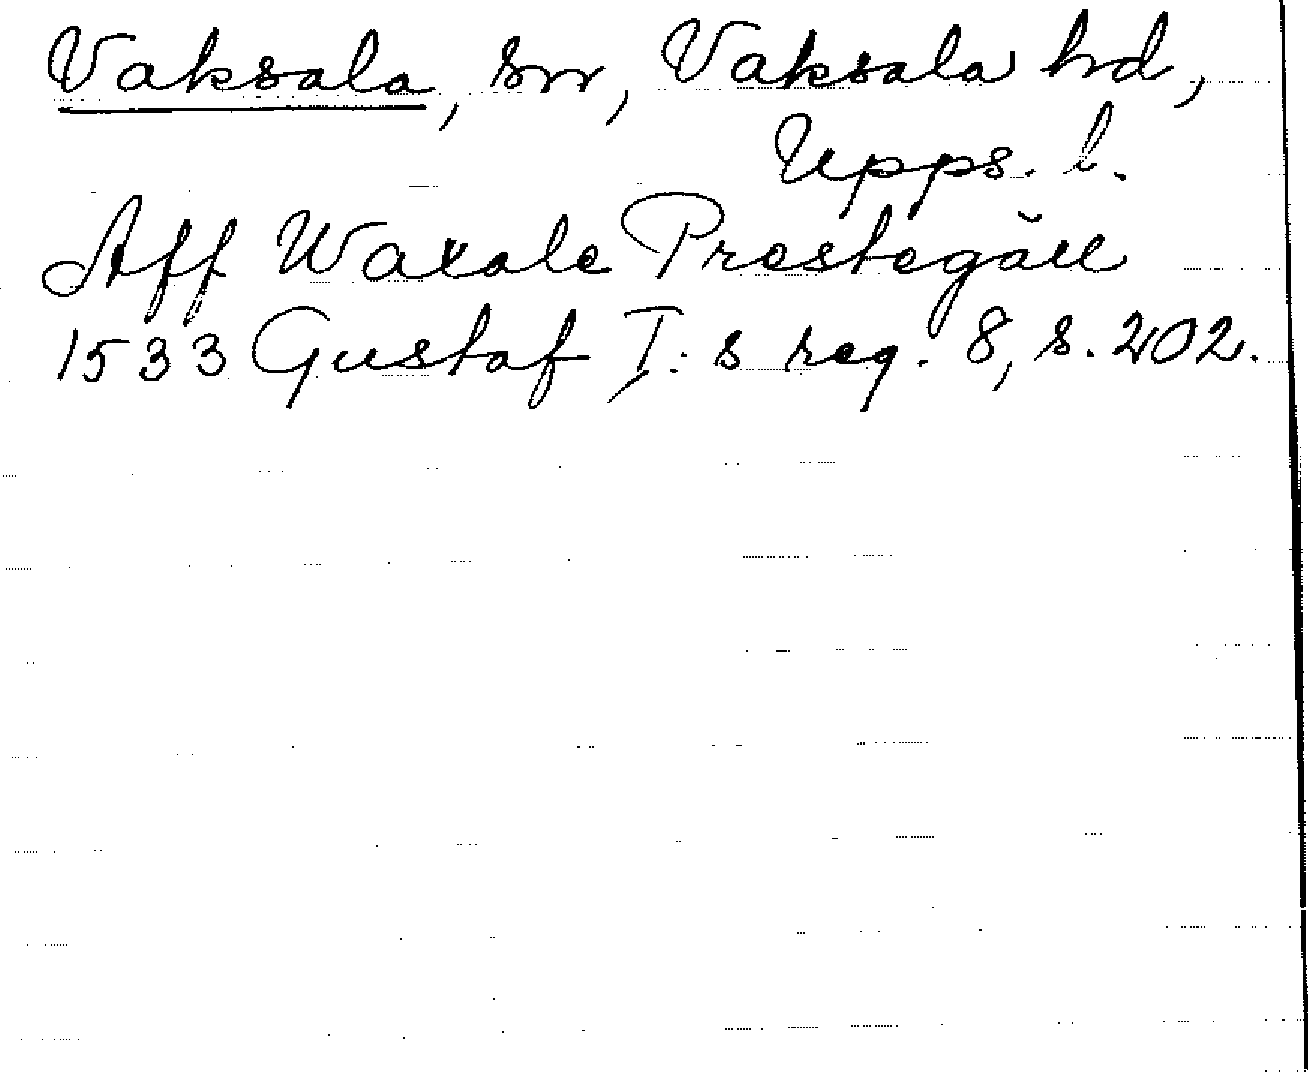 Vaksala, sn, Vaksala hd,
Upps. l.
Aff Waxale Prestegåll
1533 Gustaf I:s reg. 8, s. 202.